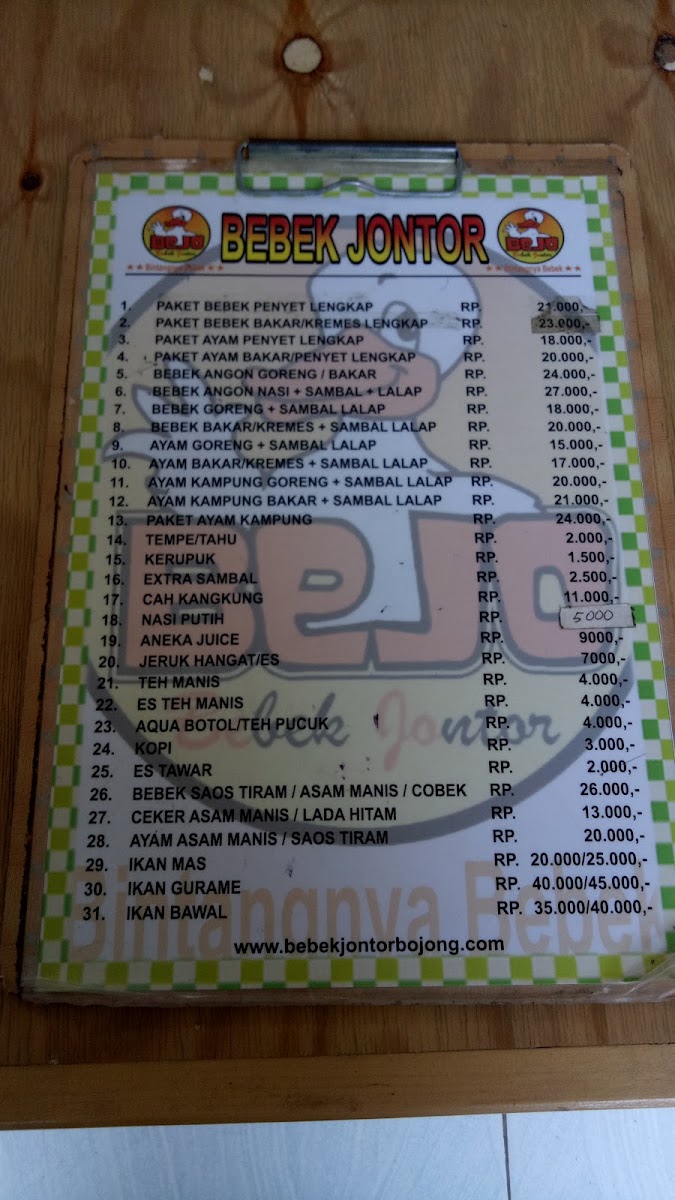 BeJo
Bebek Jontor
BEBEK JONTOR
BeJo
Bebek Jontor
★★ Bintangnya Bebek ★★
★★ Bintangnya Bebek ★★
1. PAKET BEBEK PENYET LENGKAP RP. 21.000,-
2. PAKET BEBEK BAKAR/KREMES LENGKAP RP. 23.000,-
3. PAKET AYAM PENYET LENGKAP RP. 18.000,-
4. PAKET AYAM BAKAR/PENYET LENGKAP RP. 20.000,-
5. BEBEK ANGON GORENG / BAKAR RP. 24.000,-
6. BEBEK ANGON NASI + SAMBAL + LALAP RP. 27.000,-
7. BEBEK GORENG + SAMBAL LALAP RP. 18.000,-
8. BEBEK BAKAR/KREMES + SAMBAL LALAP RP. 20.000,-
9. AYAM GORENG + SAMBAL LALAP RP. 15.000,-
10. AYAM BAKAR/KREMES + SAMBAL LALAP RP. 17.000,-
11. AYAM KAMPUNG GORENG + SAMBAL LALAP RP. 20.000,-
12. AYAM KAMPUNG BAKAR + SAMBAL LALAP RP. 21.000,-
13. PAKET AYAM KAMPUNG RP. 24.000,-
14. TEMPE/TAHU RP. 2.000,-
15. KERUPUK RP. 1.500,-
16. EXTRA SAMBAL RP. 2.500,-
17. CAH KANGKUNG RP. 11.000,-
18. NASI PUTIH RP. 5000
19. ANEKA JUICE RP. 9000,-
20. JERUK HANGAT/ES RP. 7000,-
21. TEH MANIS RP. 4.000,-
22. ES TEH MANIS RP. 4.000,-
23. AQUA BOTOL/TEH PUCUK RP. 4.000,-
24. KOPI RP. 3.000,-
25. ES TAWAR RP. 2.000,-
26. BEBEK SAOS TIRAM / ASAM MANIS / COBEK RP. 26.000,-
27. CEKER ASAM MANIS / LADA HITAM RP. 13.000,-
28. AYAM ASAM MANIS / SAOS TIRAM RP. 20.000,-
29. IKAN MAS RP. 20.000/25.000,-
30. IKAN GURAME RP. 40.000/45.000,-
31. IKAN BAWAL RP. 35.000/40.000,-
BeJo
Bebek Jontor
Bintangnya Bebek
www.bebekjontorbojong.com